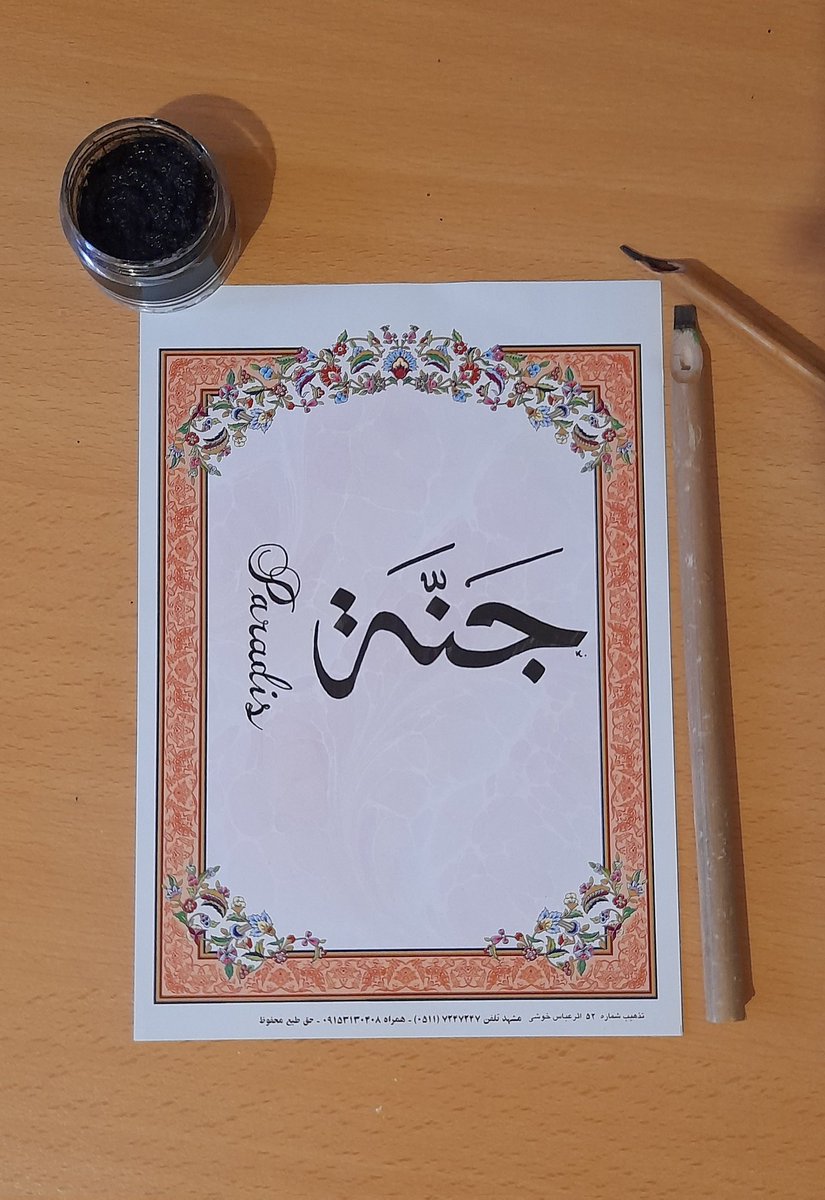 جَنَّة
Paradis
تذهیب شماره ۵۲ اثر عباس خوشی مشهد تلفن ۷۲۴۷۲۴۷ (۰۵۱۱) ـ همراه ۰۹۱۵۳۱۳۰۴۰۸ ـ حق طبع محفوظ